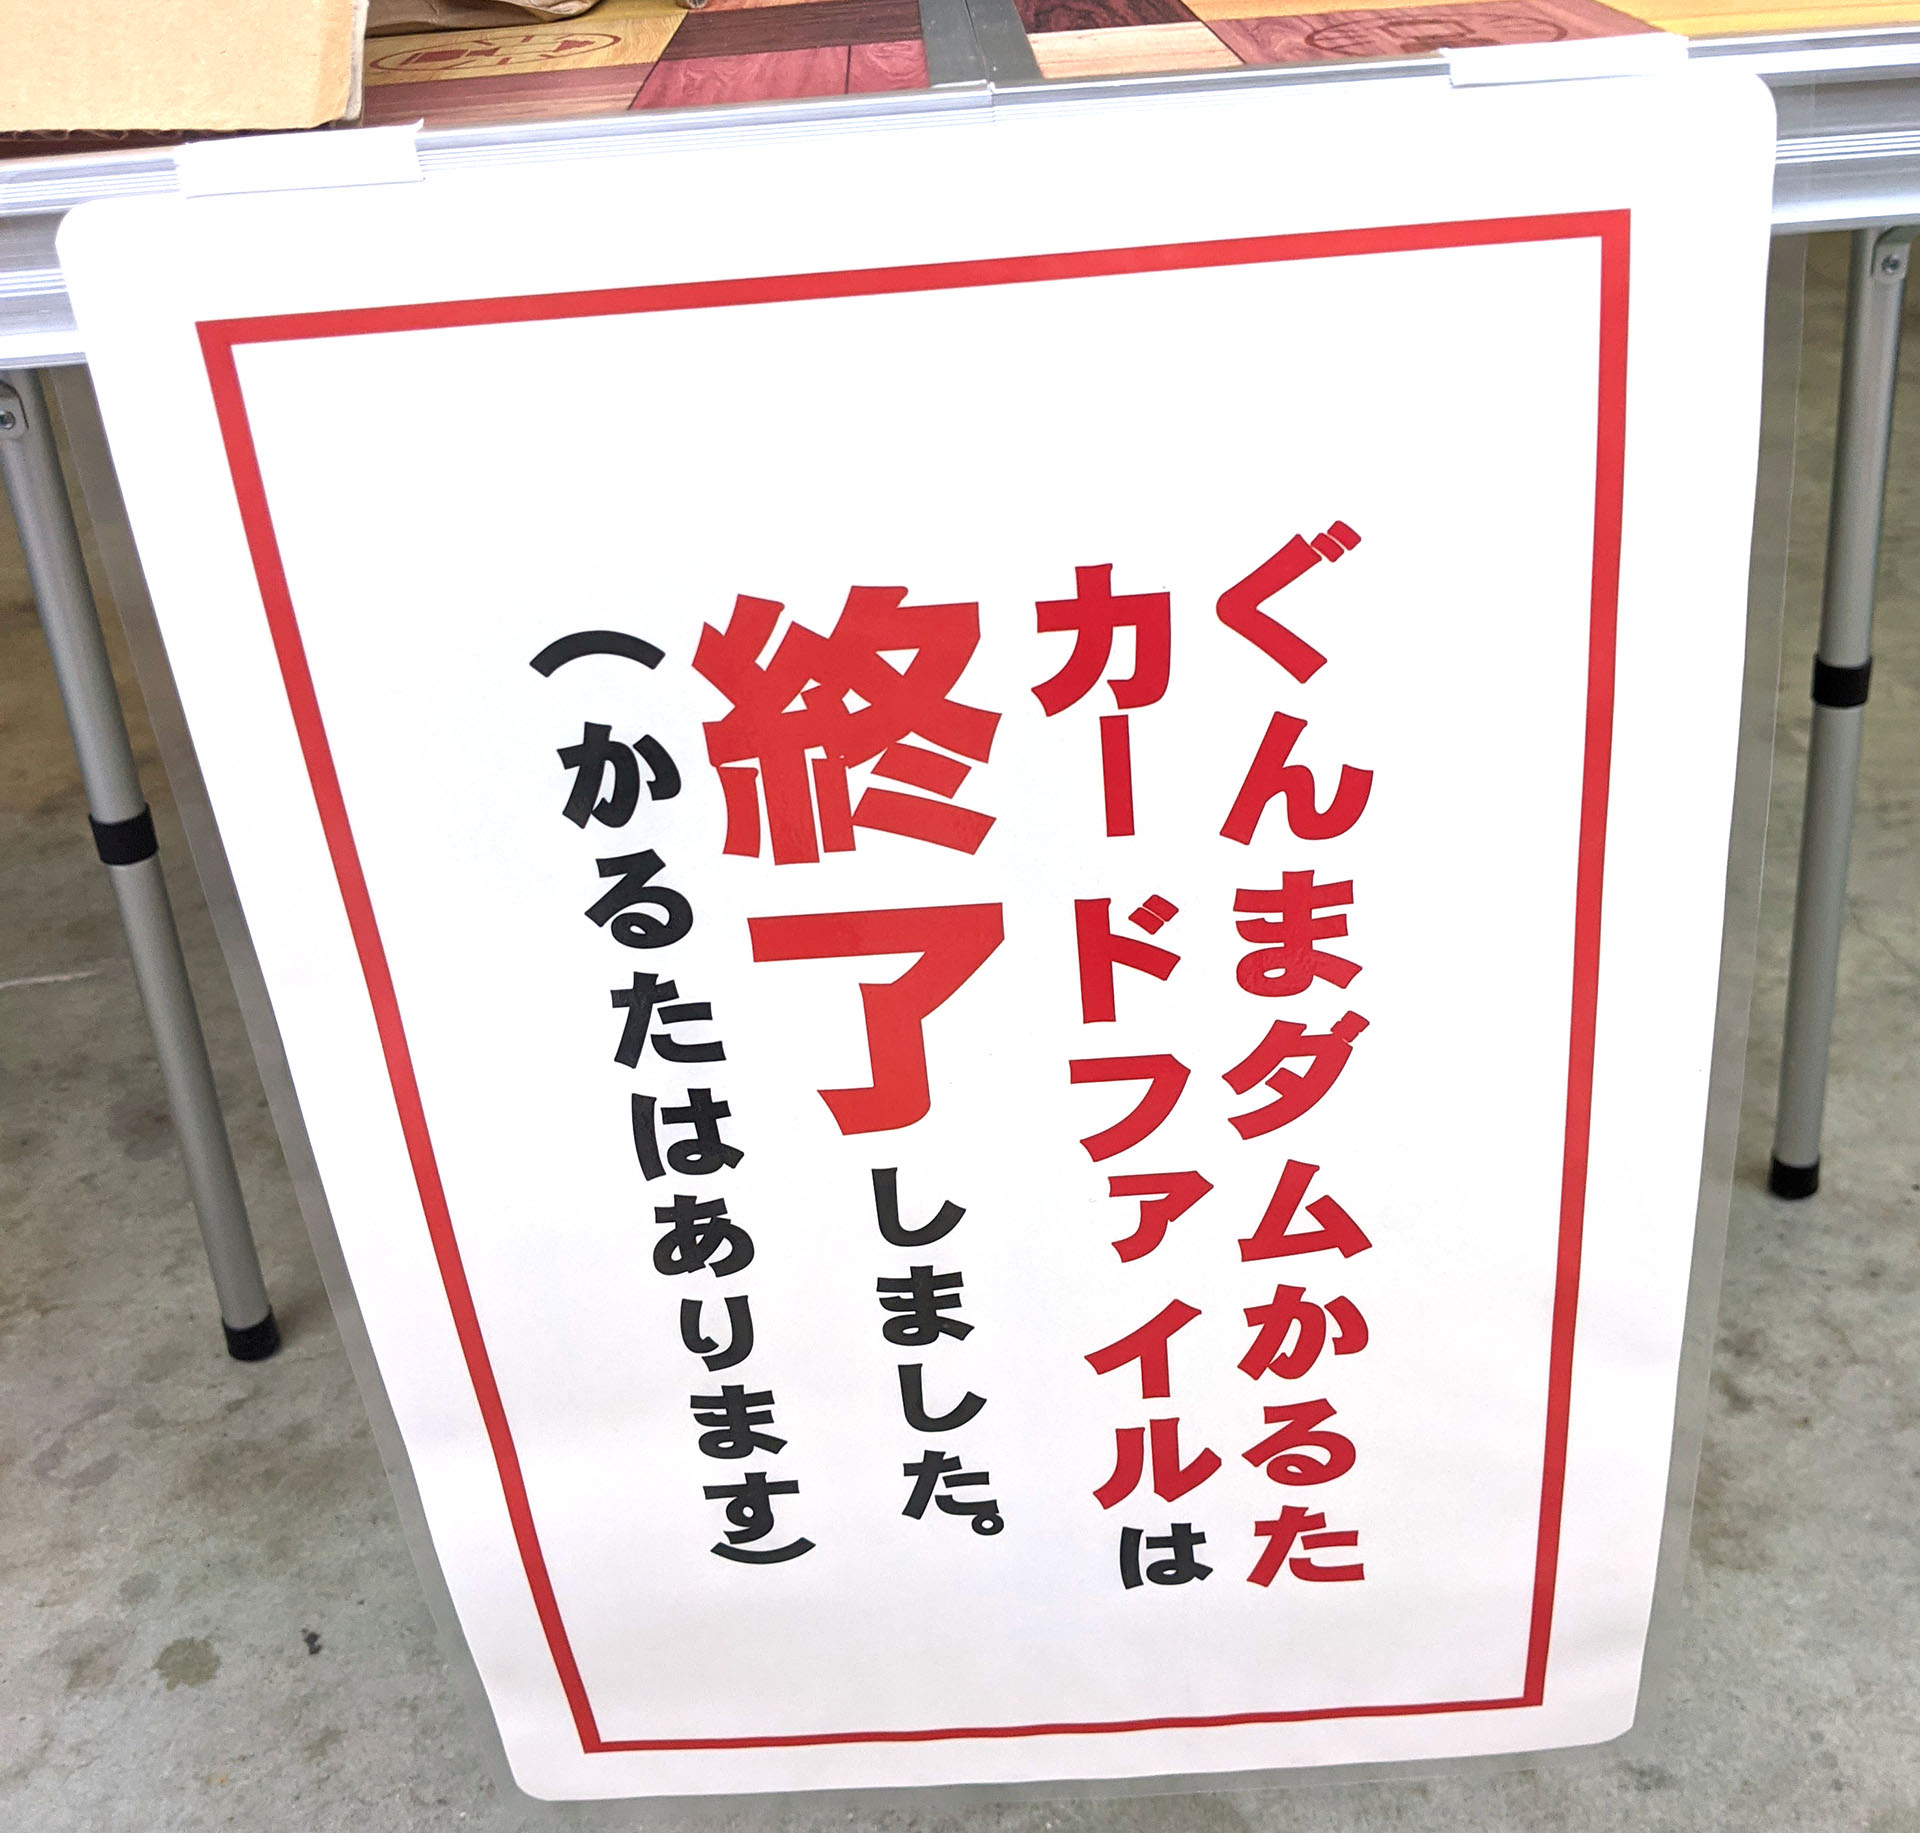 ぐんまダムかるた
カードファイルは
終了しました。
（かるたはあります）